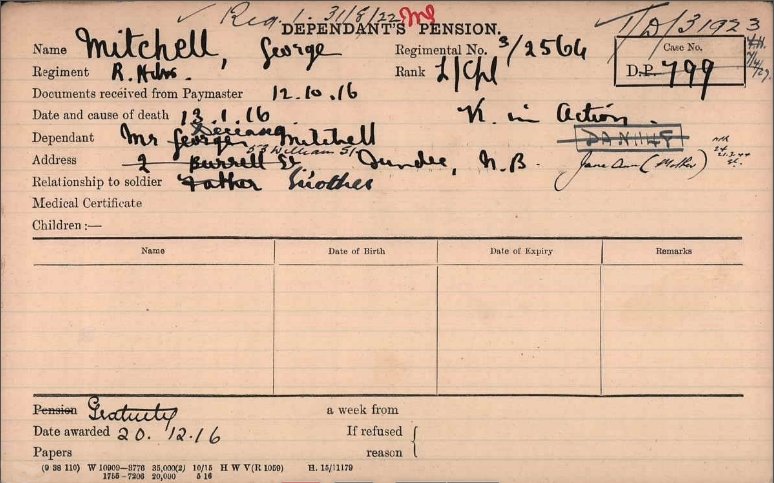 ✓ Reg. 1. 31/8/22 T/D/31923
DEPENDANT'S PENSION.
Name Mitchell, George Regimental No. 3/2564 Case No.
Regiment R. Hdrs. Rank L/Cpl D.P. 799
Documents received from Paymaster 12.10.16
Date and cause of death 13.1.16 K. in Action.
Deceased
Dependant Mr George Mitchell
53 William St
Address 2 Burrell St Dundee, N.B. Jane Ann (Mother)
Relationship to soldier Father Mother
Medical Certificate
Children :—
Name Date of Birth Date of Expiry Remarks
Pension Gratuity a week from
Date awarded 20. 12.16 If refused
Papers reason
(9 38 110) W 10909—3776 35,000(2) 10/15 H W V(R 1059) H. 15/1179
1755—7206 20,000 5 16